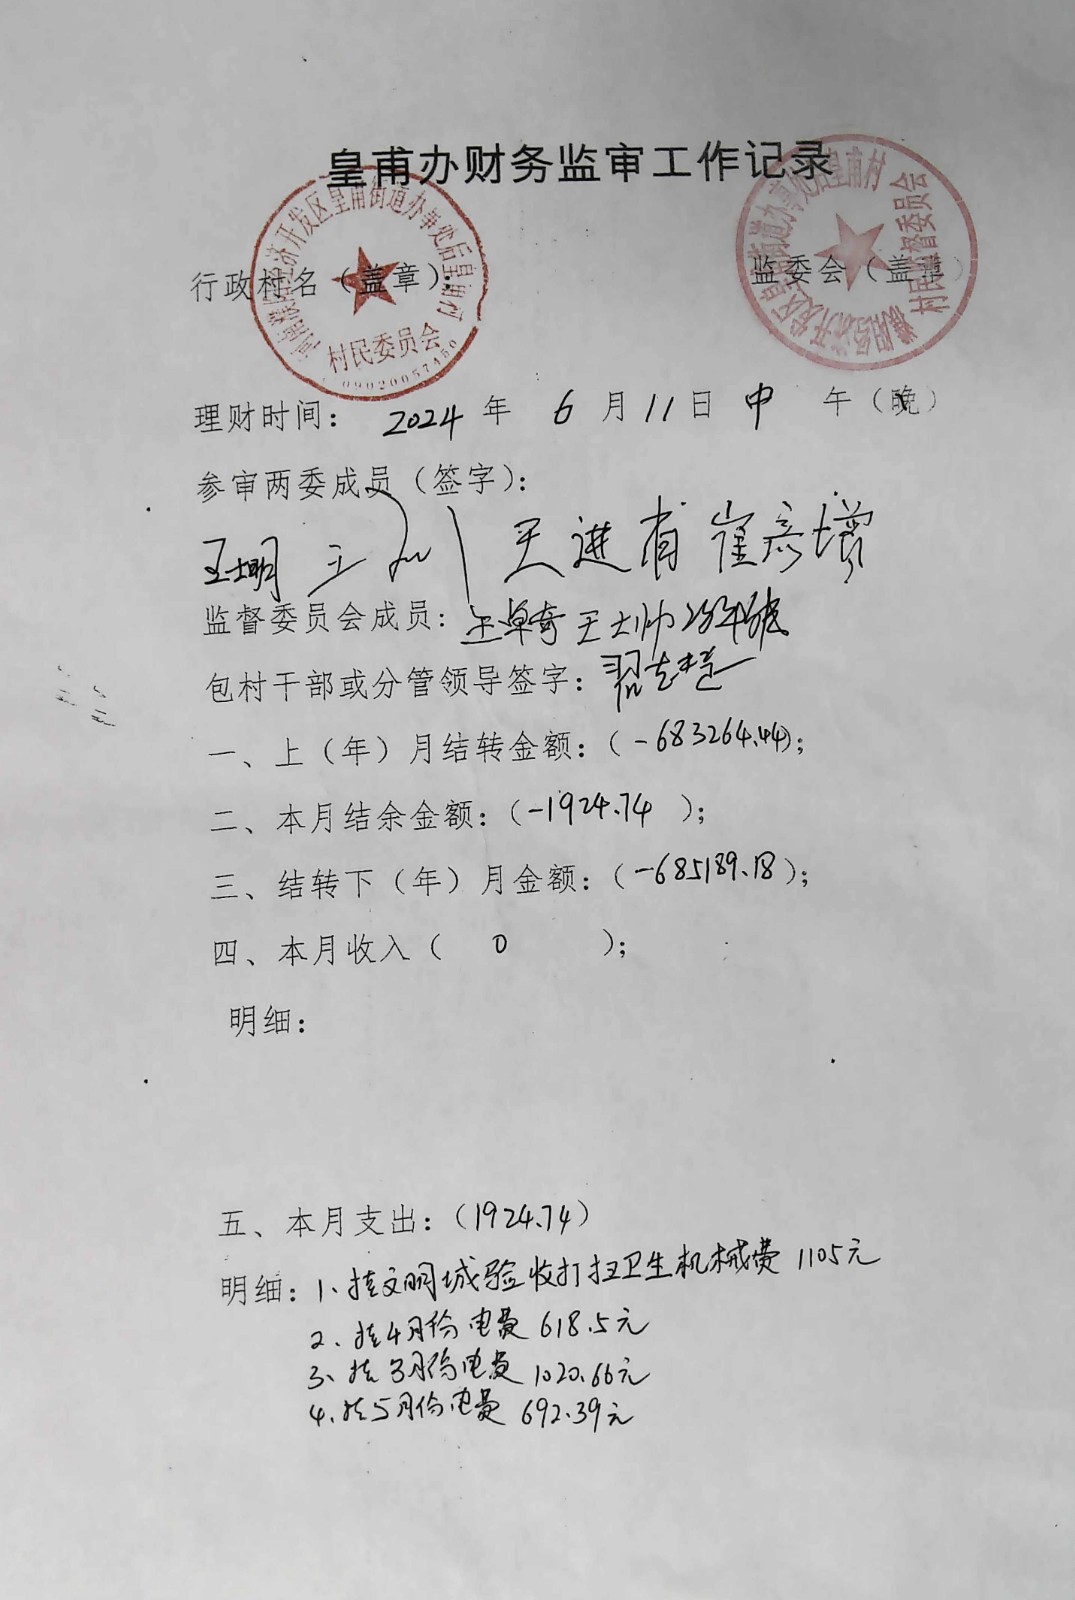 皇甫办财务监审工作记录
行政村名（盖章）：
监委会（盖章）
经济开发区皇甫街道办事处后皇甫村
村民委员会
街道办事处后皇甫村
村民监督委员会
理财时间： 2024 年 6 月 11 日 中 午（晚）
参审两委成员（签字）：
王进有 崔彦增
监督委员会成员: 王卓奇 王大帅
包村干部或分管领导签字：
一、上（年）月结转金额：（-683264.44）；
二、本月结余金额：（-1924.74 ）；
三、结转下（年）月金额：（-685189.18）；
四、本月收入（ 0 ）；
明细：
五、本月支出：（1924.74）
明细：1、挂文明城验收打扫卫生机械费 1105元
2、挂4月份电费 618.5元
3、挂3月份电费 1020.66元
4、挂5月份电费 692.39元